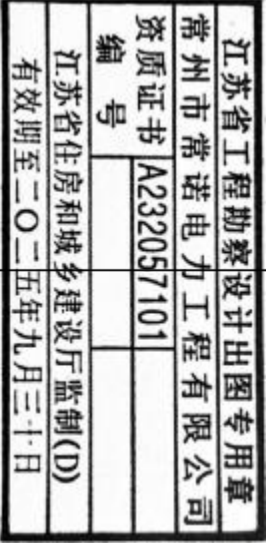 江苏省工程勘察设计出图专用章
常州市常诺电力工程有限公司
资质证书编号 A232057101
江苏省住房和城乡建设厅监制(D)
有效期至二〇二五年九月三十日